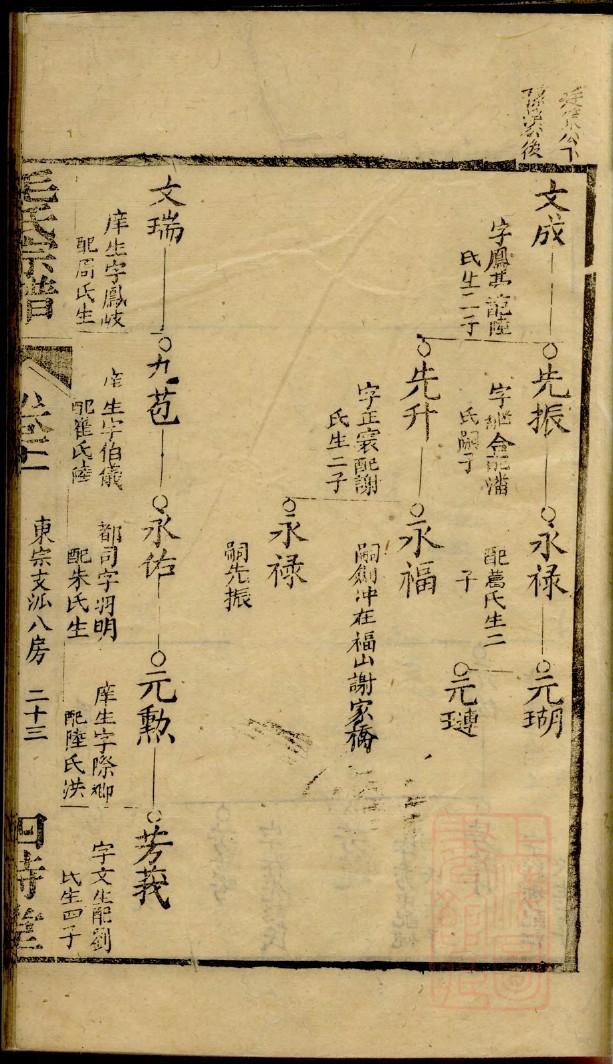 後
文成
字鳳
配陸
氏生二子
先振
字繼
氏嗣子
永祿
配葛氏生二
子
元瑚
元璉
先升
字正寰配謝
氏生二子
永福
嗣劍冲在福山謝家橋
永祿
嗣先振
文瑞
庠生字鳳岐
配周氏生
九苞
庠生字伯儀
配崔氏陸
永佑
都司字羽明
配朱氏生
元勲
庠生字際卿
配陸氏洪
芳義
字文生配劉
氏生四子
毛氏宗譜
卷二
東宗支派八房
二十三